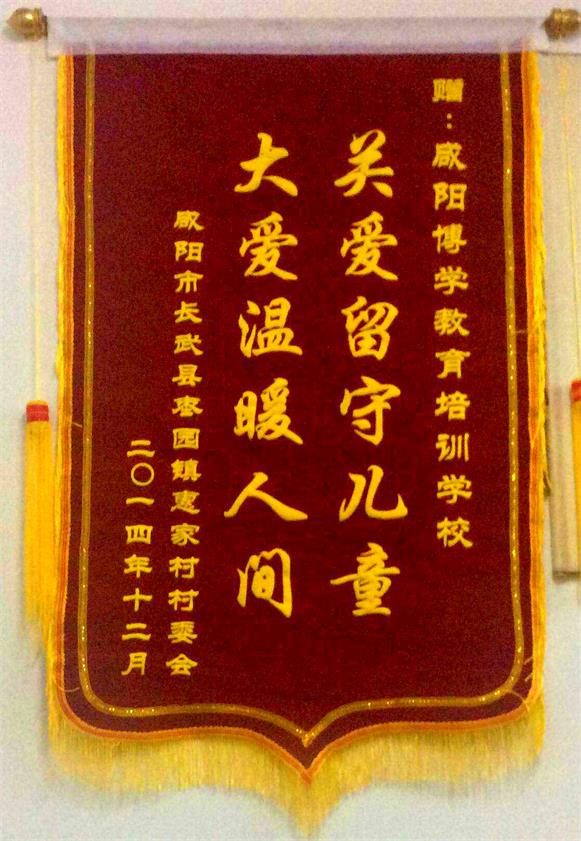 赠：咸阳博学教育培训学校
关爱留守儿童
大爱温暖人间
咸阳市长武县枣园镇惠家村村委会
二〇一四年十二月